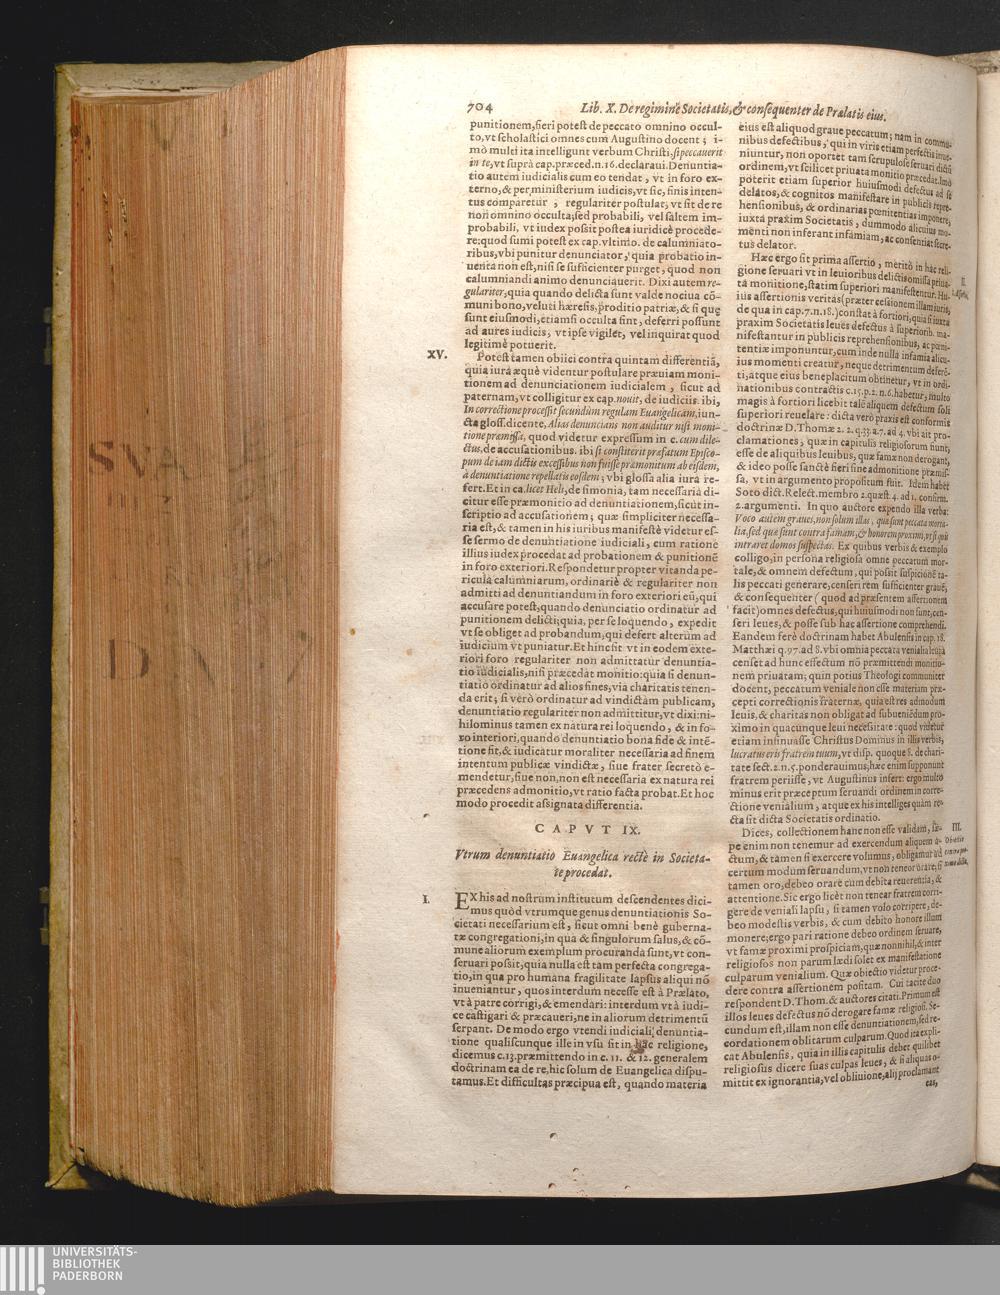 704 Lib. X. De regimine Societatis, & consequenter de Prælatis eius.
punitionem, fieri potest de peccato omnino occul-
to, vt scholastici omnes cum Augustino docent; i-
mò mulei ita intelligunt verbum Christi, si peccauerit
in te, vt suprà cap. præced. n. 16. declaraui. Denuntia-
tio autem iudicialis cum eo tendat, vt in foro ex-
terno, & per ministerium iudicis, vt sic, finis inten-
tus comparetur, regulariter postulat, vt sit de re
non omnino occulta; sed probabili, vel saltem im-
probabili, vt iudex possit postea iuridicè procede-
re: quod sumi potest ex cap. vltimo. de calumniato-
ribus, vbi punitur denunciator, quia probatio in-
uenta non est, nisi se sufficienter purget, quod non
calumniandi animo denunciauerit. Dixi autem re-
gulariter, quia quando delicta sunt valde nociua cõ-
muni bono, veluti hæresis, proditio patriæ, & si quę
sunt eiusmodi, etiamsi occulta sint, deferri possunt
ad aures iudicis, vt ipse vigilet, vel inquirat quod
legitimè potuerit.
XV.
Potest tamen obiici contra quintam differentiã,
quia iura æquè videntur postulare præuiam moni-
tionem ad denunciationem iudicialem, sicut ad
paternam, vt colligitur ex cap. nouit, de iudiciis. ibi,
In correctione processit secundùm regulam Euangelicam, iun-
cta gloss. dicente, Alias denuncians non auditur nisi moni-
tione præmissa, quod videtur expressum in c. cum dile-
ctus, de accusationibus. ibi si constiterit præfatum Episco-
pum de iam dictis excessibus non fuisse præmonitum ab eisdem,
à denuntiatione repellatis eosdem; vbi glossa alia iura re-
fert. Et in ca. licet Heli, de simonia, tam necessaria di-
citur esse præmonitio ad denuntiationem, sicut in-
scriptio ad accusationem; quæ simpliciter necessa-
ria est, & tamen in his iuribus manifestè videtur es-
se sermo de denuntiatione iudiciali, cum ratione
illius iudex procedat ad probationem & punitionẽ
in foro exteriori. Respondetur propter vitanda pe-
ricula calumniarum, ordinariè & regulariter non
admitti ad denuntiandum in foro exteriori eũ, qui
accusare potest, quando denunciatio ordinatur ad
punitionem delicti; quia, per se loquendo, expedit
vt se obliget ad probandum, qui defert alterum ad
iudicium vt puniatur. Et hinc fit vt in eodem exte-
riori foro regulariter non admittatur denuntia-
tio iudicialis, nisi præcedat monitio: quia si denun-
tiatio ordinatur ad alios fines, via charitatis tenen-
da erit; si verò ordinatur ad vindictam publicam,
denuntiatio regulariter non admittitur, vt dixi: ni-
hilominus tamen ex natura rei loquendo, & in fo-
ro interiori, quando denuntiatio bona fide & intẽ-
tione fit, & iudicatur moraliter necessaria ad finem
intentum publicæ vindictæ, siue frater secretò e-
mendetur, siue non, non est necessaria ex natura rei
præcedens admonitio, vt ratio facta probat. Et hoc
modo procedit assignata differentia.
CAPVT IX.
Vtrum denuntiatio Euangelica rectè in Societa-
te procedat.
I.
EX his ad nostrum institutum descendentes dici-
mus quòd vtrumque genus denuntiationis So-
cietati necessarium est, sicut omni benè guberna-
tæ congregationi, in qua & singulorum salus, & cõ-
mune aliorum exemplum procuranda sunt, vt con-
seruari possit, quia nulla est tam perfecta congrega-
tio, in qua pro humana fragilitate lapsus aliqui nõ
inueniantur, quos interdum necesse est à Prælato,
vt à patre corrigi, & emendari: interdum vt à iudi-
ce castigari & præcaueri, ne in aliorum detrimentũ
serpant. De modo ergo vtendi iudiciali denuntia-
tione qualiscunque ille in vsu sit in hac religione,
dicemus c. 13. præmittendo in c. 11. & 12. generalem
doctrinam ea de re, hic solum de Euangelica dispu-
tamus. Et difficultas præcipua est, quando materia
eius est aliquod graue peccatum; nam in commu-
nibus defectibus, qui in viris etiam perfectis inue-
niuntur, non oportet tam scrupulose seruari dictũ
ordinem, vt scilicet priuata monitio præcedat. Imò
poterit etiam superior huiusmodi defectus ad se
delatos, & cognitos manifestare in publicis repre-
hensionibus, & ordinarias pœnitentias imponere,
iuxta praxim Societatis, dummodo alicuius mo-
menti non inferant infamiam, ac consentiat secre-
tus delator.
II.
1. Assertio.
Hæc ergo sit prima assertio, meritò in hac reli-
gione seruari vt in leuioribus delictis omissa priua-
ta monitione, statim superiori manifestentur. Hu-
ius assertionis veritas (præter cessionem illam iuris,
de qua in cap. 7. n. 18.) constat à fortiori, quia si iuxta
praxim Societatis leues defectus à superiorib. ma-
nifestantur in publicis reprehensionibus, ac pœni-
tentiæ imponuntur, cum inde nulla infamia alicu-
ius momenti creatur, neque detrimentum deferẽ-
ti, atque eius beneplacitum obtinetur, vt in ordi-
nationibus contractis c. 15. p. 2. n. 6. habetur, multo
magis à fortiori licebit talẽ aliquem defectum soli
superiori reuelare: dicta verò praxis est conformis
doctrinæ D. Thomæ 2. 2. q. 33. a. 7. ad 4. vbi ait pro-
clamationes, quæ in capitulis religiosorum fiunt,
esse de aliquibus leuibus, quæ famæ non derogant,
& ideo posse sanctè fieri sine admonitione præmis-
sa, vt in argumento propositum fuit. Idem habet
Soto dict. Relect. membro 2. quæst. 4. ad 1. confirm.
2. argumenti. In quo auctore expendo illa verba:
Voco autem graues, non solum illas, quæ sunt peccata morta-
lia, sed quæ sunt contra famam, & honorem proximi, vt si quis
intraret domos suspectas. Ex quibus verbis & exemplo
colligo, in persona religiosa omne peccatum mor-
tale, & omnem defectum, qui possit suspicionẽ ta-
lis peccati generare, censeri rem sufficienter grauẽ,
& consequenter (quod ad præsentem assertionem
facit) omnes defectus, qui huiusmodi non sunt, cen-
seri leues, & posse sub hac assertione comprehendi.
Eandem ferè doctrinam habet Abulensis in cap. 18.
Matthæi q. 97. ad 8. vbi omnia peccata venialia leuia
censet ad hunc effectum nõ præmittendi monitio-
nem priuatam; quin potius Theologi communiter
docent, peccatum veniale non esse materiam præ-
cepti correctionis fraternæ, quia est res admodum
leuis, & charitas non obligat ad subueniẽdum pro-
ximo in quacunque leui necessitate: quod videtur
etiam insinuasse Christus Dominus in illis verbis,
lucratus eris fratrem tuum, vt disp. quoque 8. de chari-
tate sect. 2. n. 5. ponderauimus, hæc enim supponunt
fratrem periisse, vt Augustinus infert: ergo multò
minus erit præceptum seruandi ordinem in corre-
ctione venialium, atque ex his intelliges quàm re-
cta sit dicta Societatis ordinatio.
III.
Obiectio
Dices, collectionem hanc non esse validam, sæ-
pe enim non tenemur ad exercendum aliquem a-
ctum, & tamen si exercere volumus, obligamur ad
certum modum seruandum, vt non teneor orare, si
tamen oro, debeo orare cum debita reuerentia, &
attentione. Sic ergo licèt non tenear fratrem corri-
gere de veniali lapsu, si tamen volo corripere, de-
beo modestis verbis, & cum debito honore illum
monere; ergo pari ratione debeo ordinem seruare,
vt famæ proximi prospiciam, quæ nonnihil, & inter
religiosos non parum lædi solet ex manifestatione
culparum venialium. Quæ obiectio videtur proce-
dere contra assertionem positam. Cui tacitè duo
respondent D. Thom. & auctores citati. Primum est
illos leues defectus nõ derogare famæ religiosi. Se-
cundum est, illam non esse denuntiationem, sed re-
cordationem oblitarum culparum. Quod ita expli-
cat Abulensis, quia in illis capitulis debet quilibet
religiosus dicere suas culpas leues, & si aliquas o-
mittit ex ignorantia, vel obliuione, alij proclamant
eas,
SVA
D
UNIVERSITÄTS-
BIBLIOTHEK
PADERBORN